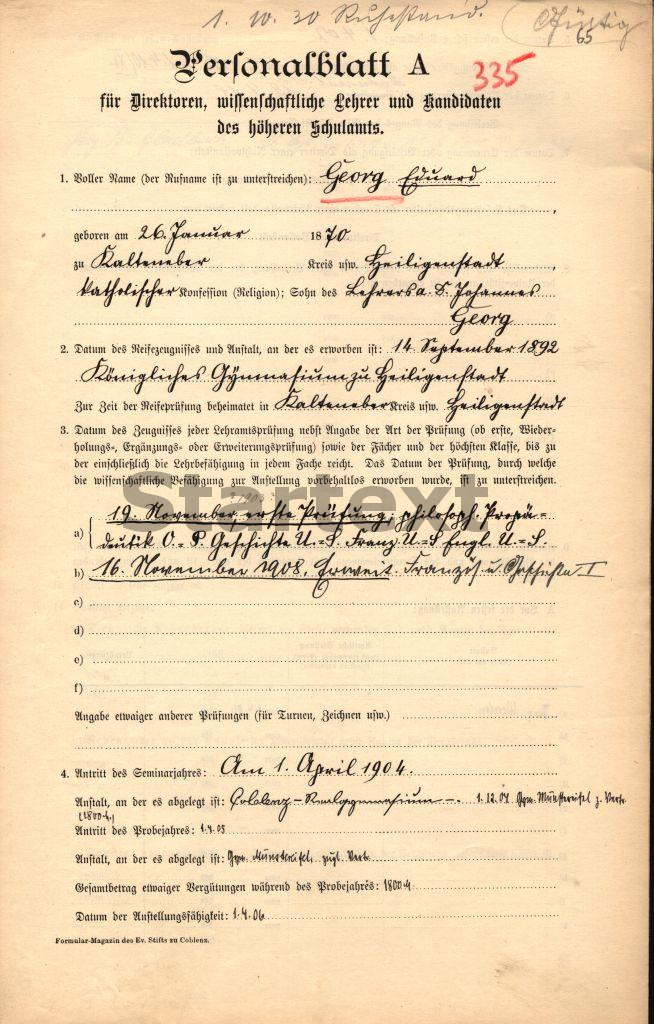 1. 10. 30 Ruhestand.
65
Personalblatt A
335
für Direktoren, wissenschaftliche Lehrer und Kandidaten
des höheren Schulamts.
1. Voller Name (der Rufname ist zu unterstreichen): Georg Eduard
geboren am 26. Januar 1870
zu Kalteneber Kreis usw. Heiligenstadt,
katholischer Konfession (Religion); Sohn des Lehrers a. D. Johannes
Georg
2. Datum des Reifezeugnisses und Anstalt, an der es erworben ist: 14. September 1892
Königliches Gymnasium zu Heiligenstadt
Zur Zeit der Reifeprüfung beheimatet in Kalteneber Kreis usw. Heiligenstadt
3. Datum des Zeugnisses jeder Lehramtsprüfung nebst Angabe der Art der Prüfung (ob erste, Wieder-
holungs-, Ergänzungs- oder Erweiterungsprüfung) sowie der Fächer und der höchsten Klasse, bis zu
der einschließlich die Lehrbefähigung in jedem Fache reicht. Das Datum der Prüfung, durch welche
die wissenschaftliche Befähigung zur Anstellung vorbehaltlos erworben wurde, ist zu unterstreichen.
Startext
19. November, erste Prüfung; philosoph. Propä-
a) deutik O.-P. Geschichte U.-S. Franz. U.-S Engl. U.-S.
b) 16. November 1908. Erweit. Französ. u. Geschichte I
c)
d)
e)
f)
Angabe etwaiger anderer Prüfungen (für Turnen, Zeichnen usw.)
4. Antritt des Seminarjahres: Am 1. April 1904.
Anstalt, an der es abgelegt ist: Coblenz-Realgymnasium -. 1.12.04 Gym. Münstereifel z. Vertr.
(1800 M.)
Antritt des Probejahres: 1.4.05
Anstalt, an der es abgelegt ist: Gym. Münstereifel, zugl. Vertr.
Gesamtbetrag etwaiger Vergütungen während des Probejahres: 1800 M
Datum der Anstellungsfähigkeit: 1.4.06
Formular-Magazin des Ev. Stifts zu Coblenz.